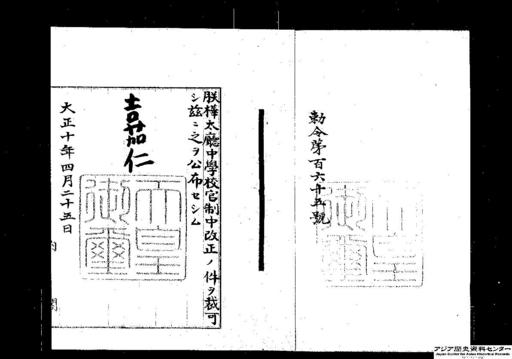 勅令第百六十五號
朕樺太廳中學校官制中改正ノ件ヲ裁可
シ茲ニ之ヲ公布セシム
嘉仁
天皇
御璽
大正十年四月二十五日
内閣
アジア歴史資料センター
Japan Center for Asian Historical Records